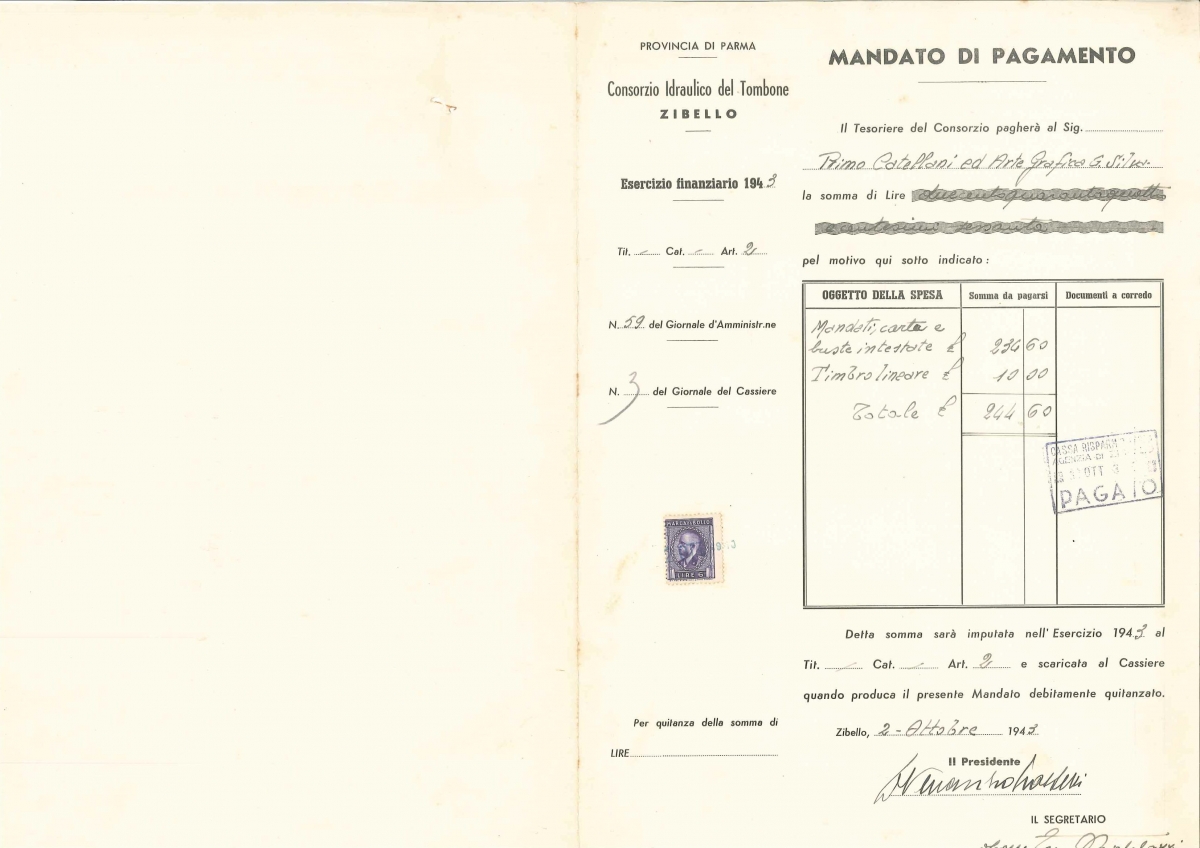 PROVINCIA DI PARMA
Consorzio Idraulico del Tombone
ZIBELLO
Esercizio finanziario 1943
Tit. Cat. Art. 2
N. 59 del Giornale d'Amministr.ne
N. 3 del Giornale del Cassiere
MARCA DA BOLLO
LIRE 6
Per quitanza della somma di
LIRE
MANDATO DI PAGAMENTO
Il Tesoriere del Consorzio pagherà al Sig.
Primo Catellani ed Arte Grafica G. Silva
la somma di Lire duecentoquarantaquattro
e centesimi sessanta
pel motivo qui sotto indicato :
OGGETTO DELLA SPESA Somma da pagarsi Documenti a corredo
Mandati, carta e
buste intestate £ 234 60
Timbro lineare £ 10 00
Totale £ 244 60
CASSA RISPARM
AGENZIA DI
OTT
PAGATO
Detta somma sarà imputata nell'Esercizio 1943 al
Tit. Cat. Art. 2 e scaricata al Cassiere
quando produca il presente Mandato debitamente quitanzato.
Zibello, 2 - Ottobre 1943
Il Presidente
IL SEGRETARIO